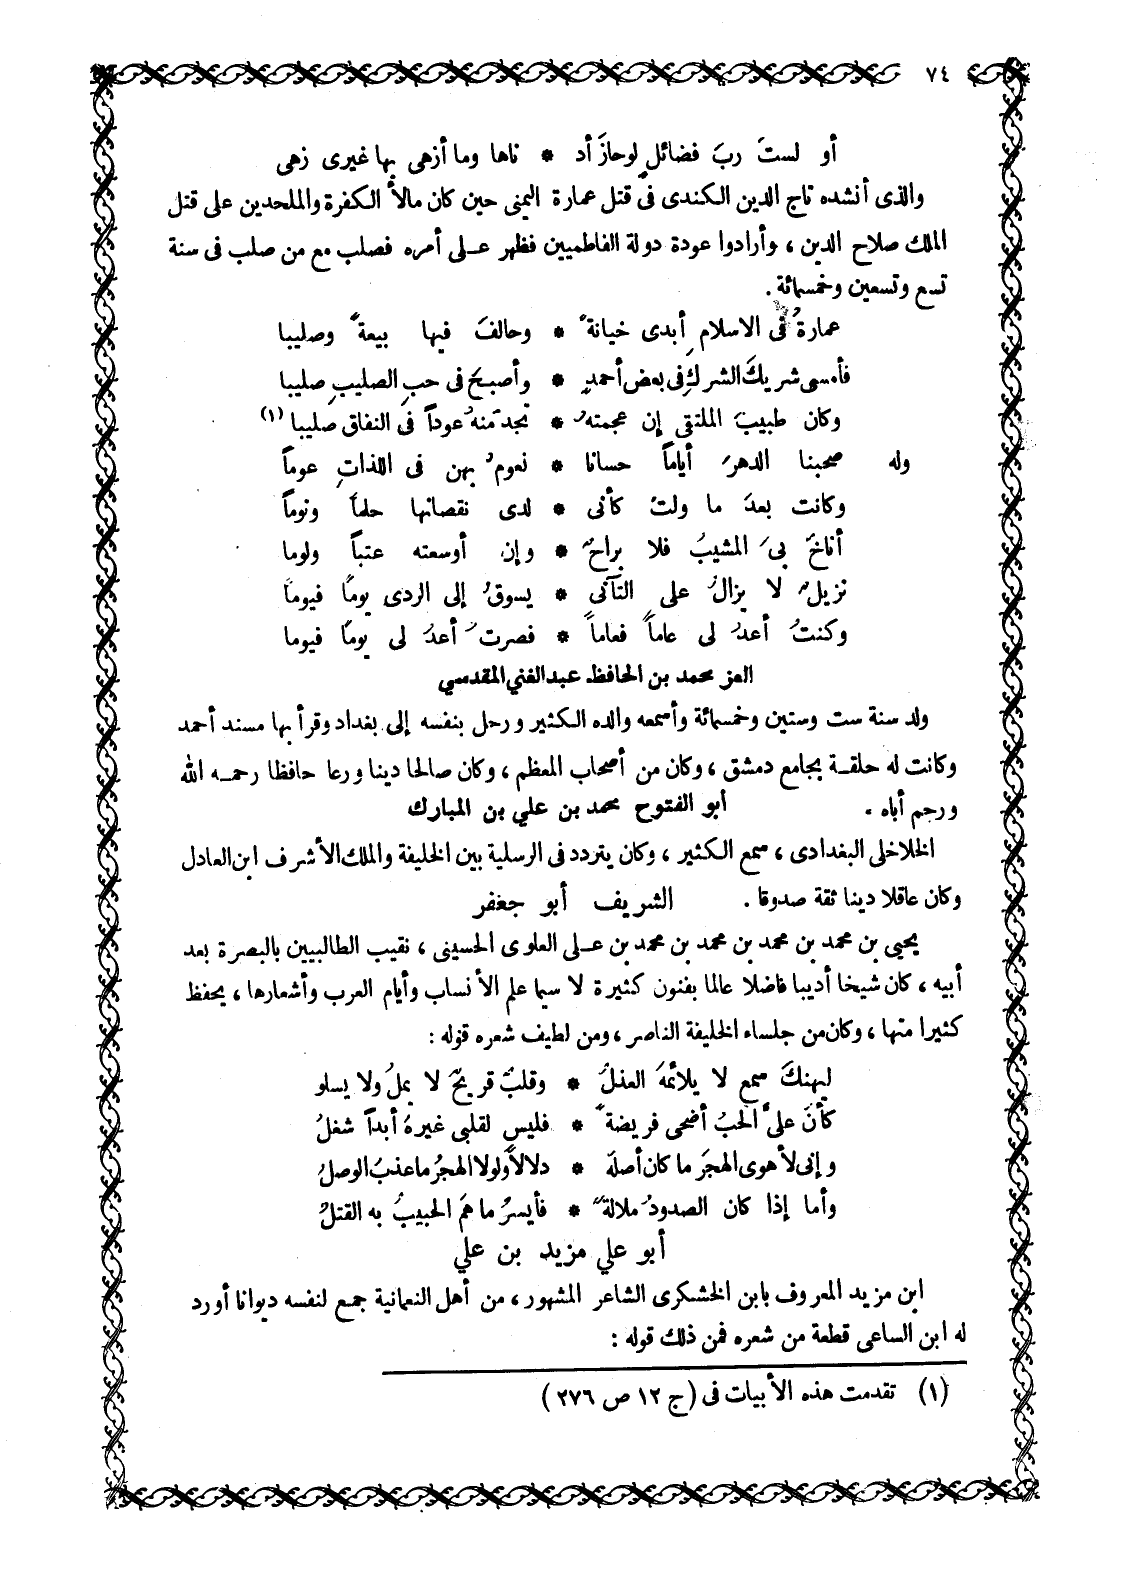 ٧٤
أو لستَ ربَ فضائلٍ لوحازَ أد * ناها وما أزهى بها غيرى زهى
والذى أنشده تاج الدين الكندى فى قتل عمارة اليمنى حين كان مالأ الكفرة والملحدين على قتل
الملك صلاح الدين ، وأرادوا عودة دولة الفاطميين فظهر عـلى أمره فصلب مع من صلب فى سنة
تسع وتسعين وخمسمائة .
عمارةُ فى الاسلامِ أبدى خيانةً * وحالفَ فيها بيعةً وصليبا
فأمسى شريكَ الشركِ فى بعض أحمدٍ * وأصبحَ فى حبِ الصليبِ صليبا
وكان طبيبَ الملتقى إن عجمتهُ * تجد منهُ عوداً فى النفاقِ صليبا (١)
وله صحبنا الدهرَ أياماً حسانا * نعومُ بهن فى اللذاتِ عوماً
وكانت بعدَ ما ولتْ كأنى * لدى نقصانها حلماً ونوماً
أناخَ بىَ المشيبُ فلا براحٌ * وإن أوسعته عتباً ولوما
نزيلٌ لا يزالُ على التآنى * يسوقُ إلى الردى يوماً فيوماً
وكنتُ أعدُ لى عاماً فعاماً * فصرتُ أعدُ لى يوماً فيوما
العز محمد بن الحافظ عبدالغني المقدسي
ولد سنة ست وستين وخمسمائة وأسمعه والده الكثير ورحل بنفسه إلى بغداد وقرأ بها مسند أحمد
وكانت له حلقـة بجامع دمشق ، وكان من أصحاب المعظم ، وكان صالحا دينا ورعا حافظا رحمـه الله
ورحم أباه . أبو الفتوح محمد بن علي بن المبارك
الخلاخلى البغدادى ، سمع الكثير ، وكان يتردد فى الرسلية بين الخليفة والملك الأشرف ابن العادل
وكان عاقلا دينا ثقة صدوقا . الشريف أبو جعفر
يحيى بن محمد بن محمد بن محمد بن محمد بن عـلى العلوى الحسينى ، نقيب الطالبيين بالبصرة بعد
أبيه ، كان شيخا أديبا فاضلا عالما بفنون كثيرة لا سيما علم الأنساب وأيام العرب وأشعارها ، يحفظ
كثيرا منها ، وكان من جلساء الخليفة الناصر ، ومن لطيف شعره قوله :
ليهنكَ سمع لا يلائمهَ العذلُ * وقلبٌ قريحٌ لا يملُ ولا يسلو
كأنَ علىَّ الحبُ أضحى فريضةً * فليسِ لقلبى غيرهُ أبداً شغلُ
وإنى لأهوى الهجرَ ما كان أصلهَ * دلالاً ولولا الهجرُ ما عذبُ الوصلُ
وأما إذا كان الصدودُ ملالةً * فأيسرُ ما همَ الحبيبُ به القتلُ
أبو علي مزيد بن علي
ابن مزيد المعروف بابن الخشكرى الشاعر المشهور ، من أهل النعمانية جمع لنفسه ديوانا أورد
له ابن الساعى قطعة من شعره فمن ذلك قوله :
(١) تقدمت هذه الأبيات فى (ج ١٢ ص ٢٧٦)